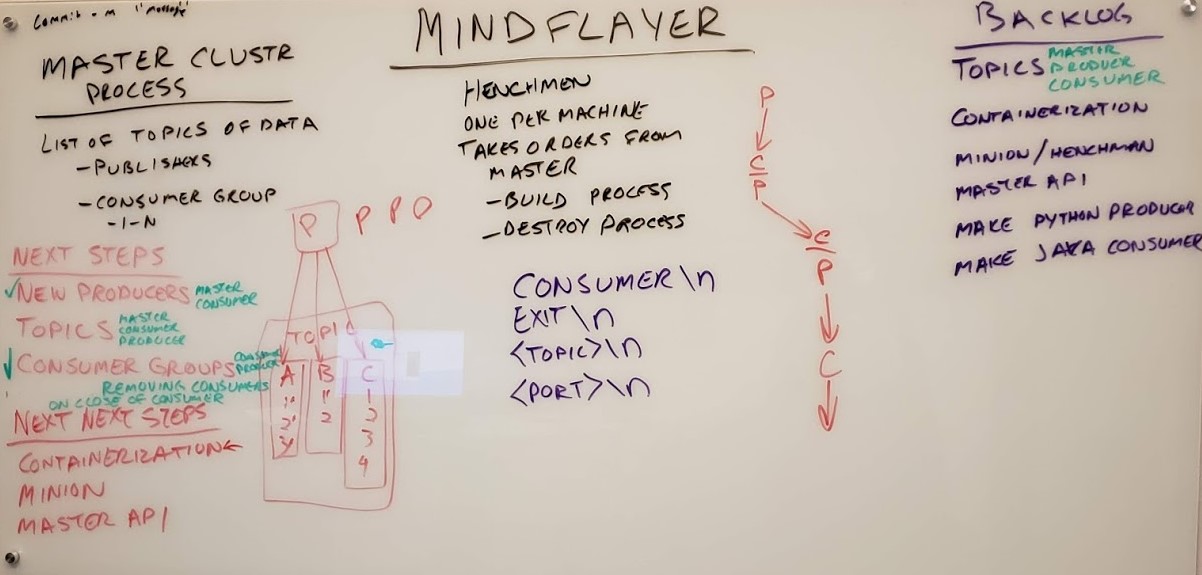 Commit -m "message"
MASTER CLUSTR
PROCESS
LIST OF TOPICS OF DATA
-PUBLISHERS
-CONSUMER GROUP
-1-N
NEXT STEPS
✓NEW PRODUCERS MASTER
CONSUMER
TOPICS MASTER
CONSUMER
PRODUCER
✓CONSUMER GROUPS CONSUMER
PRODUCER
REMOVING CONSUMERS
ON CLOSE OF CONSUMER
NEXT NEXT STEPS
CONTAINERIZATION
MINION
MASTER API
P P P
TOPIC
A B C
1 1 1
2 2 2
3 3
4
MINDFLAYER
HENCHMEN
ONE PER MACHINE
TAKES ORDERS FROM
MASTER
-BUILD PROCESS
-DESTROY PROCESS
CONSUMER\n
EXIT\n
<TOPIC>\n
<PORT>\n
P
C
P
C
P
C
BACKLOG
TOPICS MASTER
PRODUCER
CONSUMER
CONTAINERIZATION
MINION/HENCHMAN
MASTER API
MAKE PYTHON PRODUCER
MAKE JAVA CONSUMER